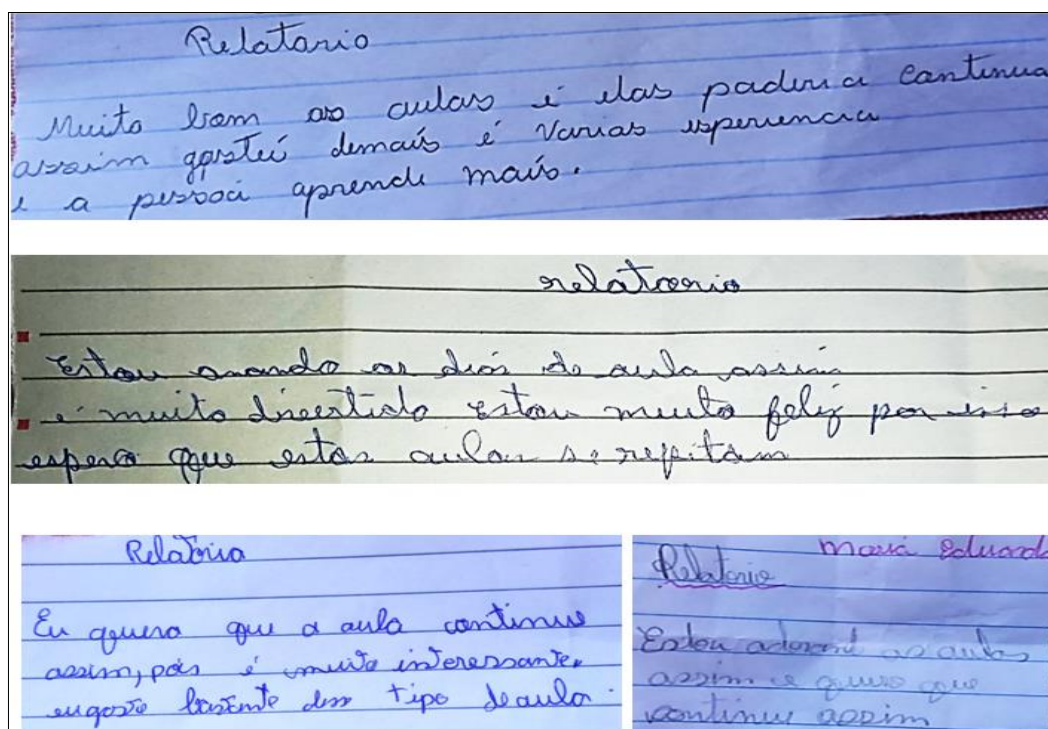 Relatario
Muito bom as aulas é elas paderia cantinua
assim gostei demais é varias esperiencia
e a pessoa aprende mais.
relatorio
Estou amando os dias de aula assim
é muito divertido estou muito feliz por isso
espero que estas aulas se repitam
Relatória
Eu quero que a aula continue
assim, pois é muito interessante.
eu gosto bastente dess tipo de aula.
Maria Eduard
Relatorio
Estou adorand as aulas
assim e quero que
continue assim